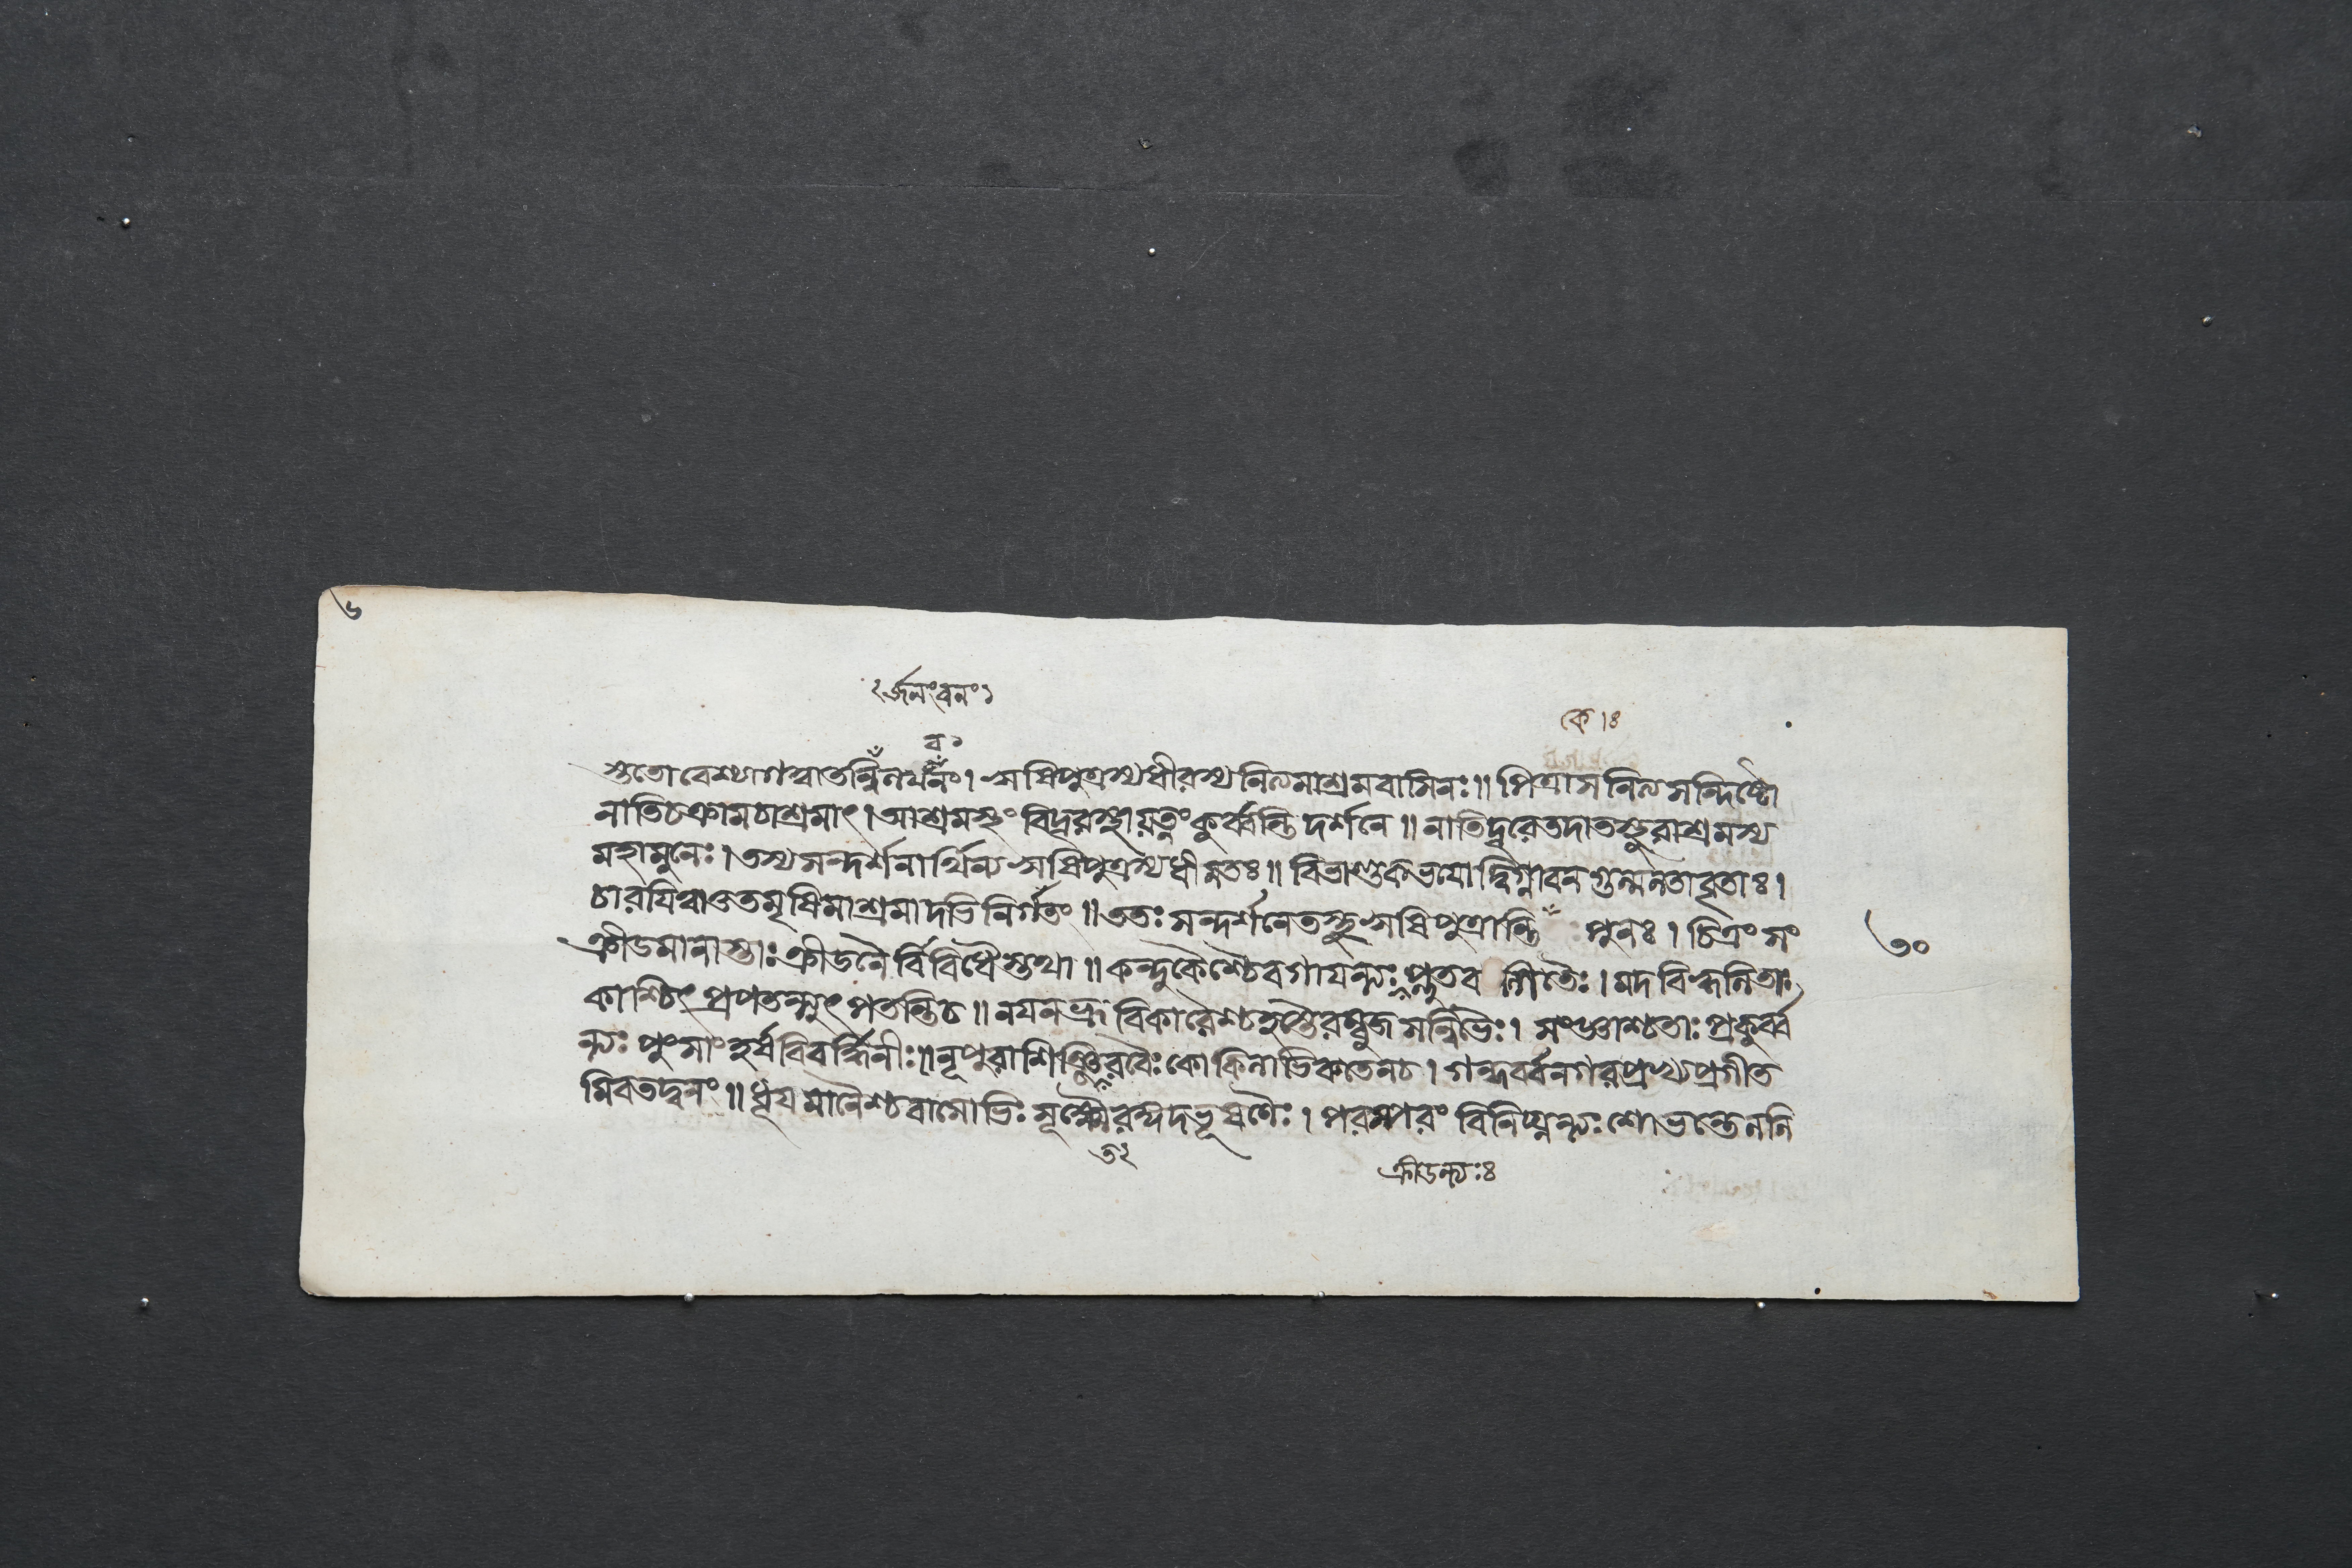 ৬
২ র্জনং বনং ১
কে ।ঃ
ব ১
স্ততো বেশ্যা গত্বা তন্নি নর্থনং । ঋষিপুত্রস্য ধীরস্য নিত্যমাশ্রমবাসিনঃ ॥ পিত্রা স নিত্য সন্দিষ্টো
নাতিচক্রাম চাশ্রমাৎ । আশ্রমস্থং বিদূরস্থা যত্নং কুর্ব্বন্তি দর্শনে ॥ নাতিদূরে তদা তস্থুরাশ্রমস্য
মহামুনেঃ । তস্য সন্দর্শনার্থিন্য ঋষিপুত্রস্য ধীমতঃ ॥ বিভাণ্ডকভয়োদ্বিগ্না বনগুল্মলতাবৃতাঃ ।
চারয়িত্বা তু তমৃষিমাশ্রমাদভিনির্গতং ॥ ততঃ সন্দর্শনে তস্থু ঋষিপুত্রান্তি পুনঃ । চিত্রং সং
ক্রীডমানাস্তাঃ ক্রীডনৈর্বিবিধৈস্তথা ॥ কন্দুকৈশ্চৈব গায়ন্ত্যঃ প্লুতব ল্গিতৈঃ । মদবিহ্বলিতাঃ
কাশ্চিৎ প্রপতন্ত্যুৎপতন্তি চ ॥ নয়নভ্রূবিকারৈশ্চ হস্তৈরম্বুজসন্নিভৈঃ । সংজ্ঞাশ্চ তাঃ প্রকুর্ব্ব
ন্ত্যঃ পুংসাং হর্ষবিবর্দ্ধিনীঃ ॥ নূপুরাশিঞ্জিরবৈঃ কোকিলাভিরুতেন চ । গন্ধর্ব্বনগরপ্রখ্য প্রগীত
মিব তদ্বনং ॥ ধূয়মানৈশ্চ বাসোভিঃ সূক্ষ্মৈরঙ্গদভূষণৈঃ । পরস্পরং বিনিঘ্নন্ত্যঃ শোভন্তেননি
৩০
ক্রীডন্ত্যঃ ৪